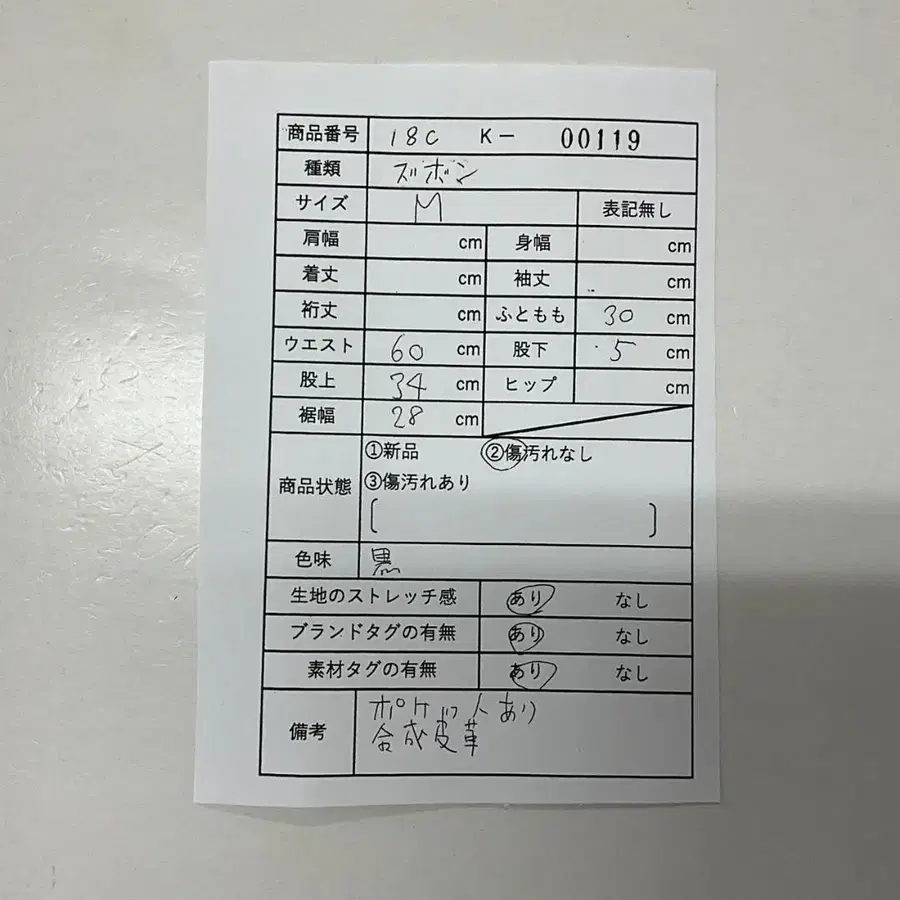 商品番号 18C K- 00119
種類 ズボン
サイズ M 表記無し
肩幅 cm 身幅 cm
着丈 cm 袖丈 cm
裄丈 cm ふともも 30 cm
ウエスト 60 cm 股下 5 cm
股上 34 cm ヒップ cm
裾幅 28 cm
商品状態 ①新品 ②傷汚れなし
③傷汚れあり
[ ]
色味 黒
生地のストレッチ感 あり なし
ブランドタグの有無 あり なし
素材タグの有無 あり なし
備考 ポケット人あり
合成皮革